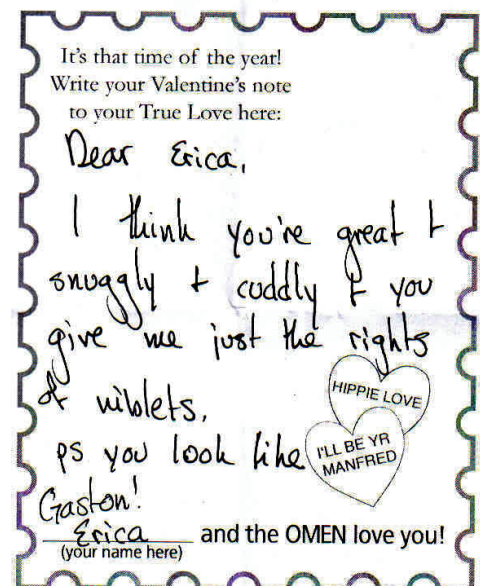 It's that time of the year!
Write your Valentine's note
to your True Love here:
Dear Erica,
I think you're great +
snuggly + cuddly + you
give me just the rights
of niblets.
ps you look like
Gaston!
HIPPIE LOVE
I'LL BE YR
MANFRED
Erica and the OMEN love you!
(your name here)